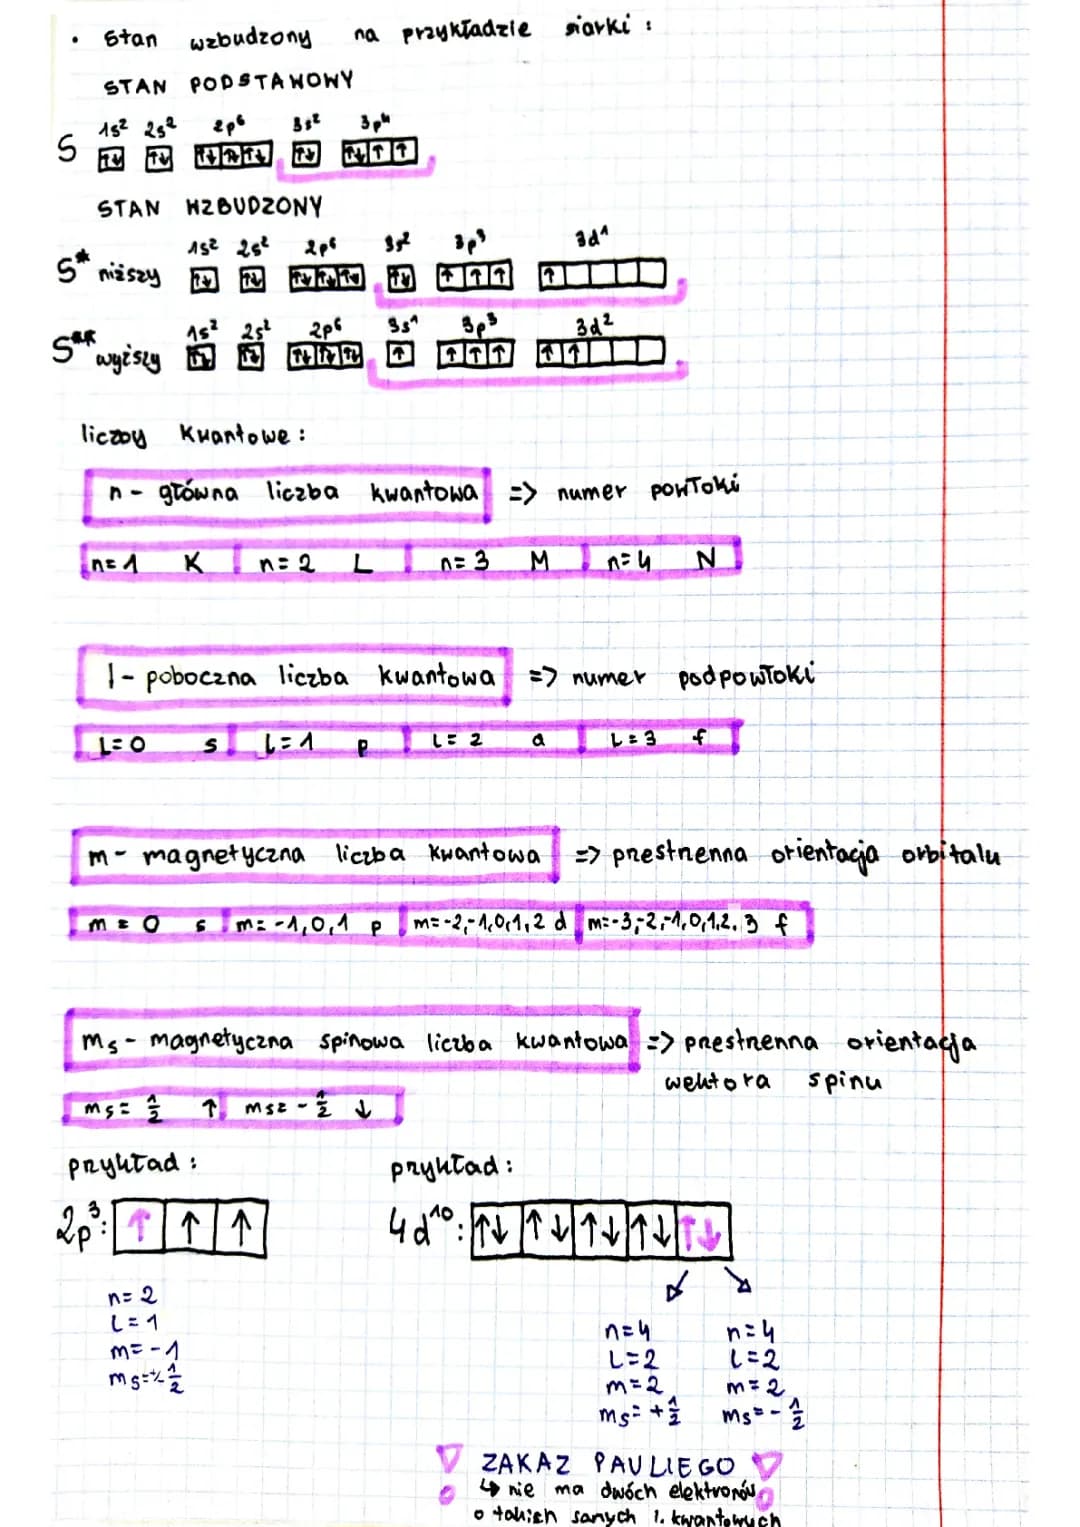 • Stan wzbudzony na przykładzie siarki :
STAN PODSTAWOWY
1s² 2s² 2p⁶ 3s² 3p⁴
S ↑↓ ↑↓ ↑↓ ↑↓ ↑↓ ↑↓ ↑↓ ↑ ↑
STAN WZBUDZONY
1s² 2s² 2p⁶ 3s² 3p³ 3d¹
S* niższy ↑↓ ↑↓ ↑↓ ↑↓ ↑↓ ↑↓ ↑ ↑ ↑ ↑
1s² 2s² 2p⁶ 3s¹ 3p³ 3d²
S** wyższy ↑↓ ↑↓ ↑↓ ↑↓ ↑↓ ↑ ↑ ↑ ↑ ↑ ↑
liczby kwantowe :
n - główna liczba kwantowa => numer powłoki
n=1 K n=2 L n=3 M n=4 N
l - poboczna liczba kwantowa => numer podpowłoki
L=0 s l=1 p l=2 a L=3 f
m - magnetyczna liczba kwantowa => przestrzenna orientacja orbitalu
m=0 s m=-1,0,1 p m=-2,-1,0,1,2 d m=-3,-2,-1,0,1,2,3 f
ms - magnetyczna spinowa liczba kwantowa => przestrzenna orientacja
wektora spinu
ms=½ ↑ ms=-½ ↓
przykład : przykład :
2p³: ↑ ↑ ↑ 4d¹⁰: ↑↓ ↑↓ ↑↓ ↑↓ ↑↓
n=2
l=1
m=-1
ms=+½
n=4 n=4
L=2 l=2
m=2 m=2
ms=+½ ms=-½
! ZAKAZ PAULIEGO !
↳ nie ma dwóch elektronów
o takich samych l. kwantowych